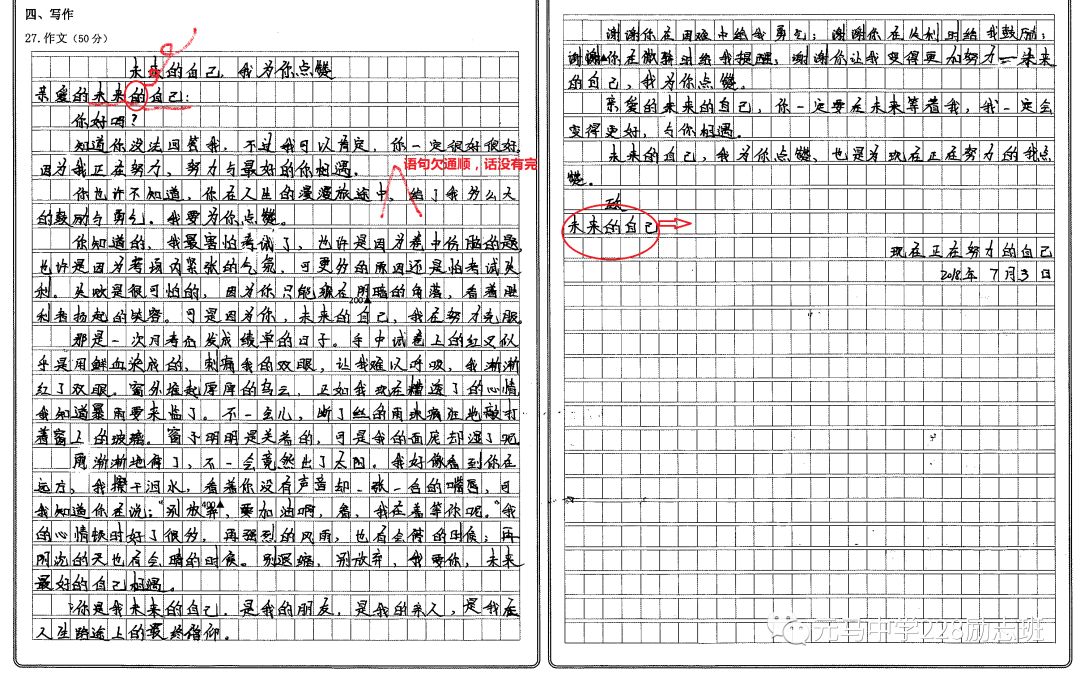 四、写作
27.作文(50分)
未来的自己，我为你点赞
亲爱的未来的自己：
你好吗？
知道你没法回答我，不过我可以肯定，你一定很好很好，
语句欠通顺，话没有完
因为我正在努力，努力与最好的你相遇。
你也许不知道，你在人生的漫漫旅途中，给了我多么大
的鼓励与勇气。我要为你点赞。
你知道的，我最害怕考试了，也许是因为卷中伤脑的题，
也许是因为考场内紧张的气氛，可更多的原因还是怕考试失
利。失败是很可怕的，因为你只能缩在阴暗的角落，看着胜
200▲
利者扬起的笑容。可是因为你，未来的自己，我在努力克服。
那是一次月考后发成绩单的日子。手中试卷上的红叉似
乎是用鲜血染成的，刺痛我的双眼，让我难以呼吸，我渐渐
红了双眼。窗外堆起厚厚的乌云，正如我现在糟透了的心情
我知道暴雨要来临了。不一会儿，断了线的雨珠疯狂地敲打
着窗上的玻璃。窗子明明是关着的，可是我的面庞却湿了呢
雨渐渐地停了，不一会竟然出了太阳。我好像看到你在
远方，我擦干泪水，看着你没有声音却一张一合的嘴唇，可
400▲
我知道你在说："别放弃，要加油啊，看，我在着等你呢。"我
的心情顿时好了很多，再强烈的风雨，也有会停的时候；再
阴沉的天也有会晴的时候。别退缩，别放弃，我要你，未来
最好的自己相遇。
你是我未来的自己，是我的朋友，是我的亲人，是我在
人生路途上的最终信仰。
谢谢你在困难中给我勇气；谢谢你在失利时给我鼓励；
谢谢你在微醉时给我提醒，谢谢你让我变得更加努力——未来
的自己，我为你点赞。
亲爱的未来的自己，你一定要在未来等着我，我一定会
变得更好，与你相遇。
未来的自己，我为你点赞，也是为现在正在努力的我点
赞。
致
未来的自己
现在正在努力的自己
2018年7月3日
元马中学228励志班